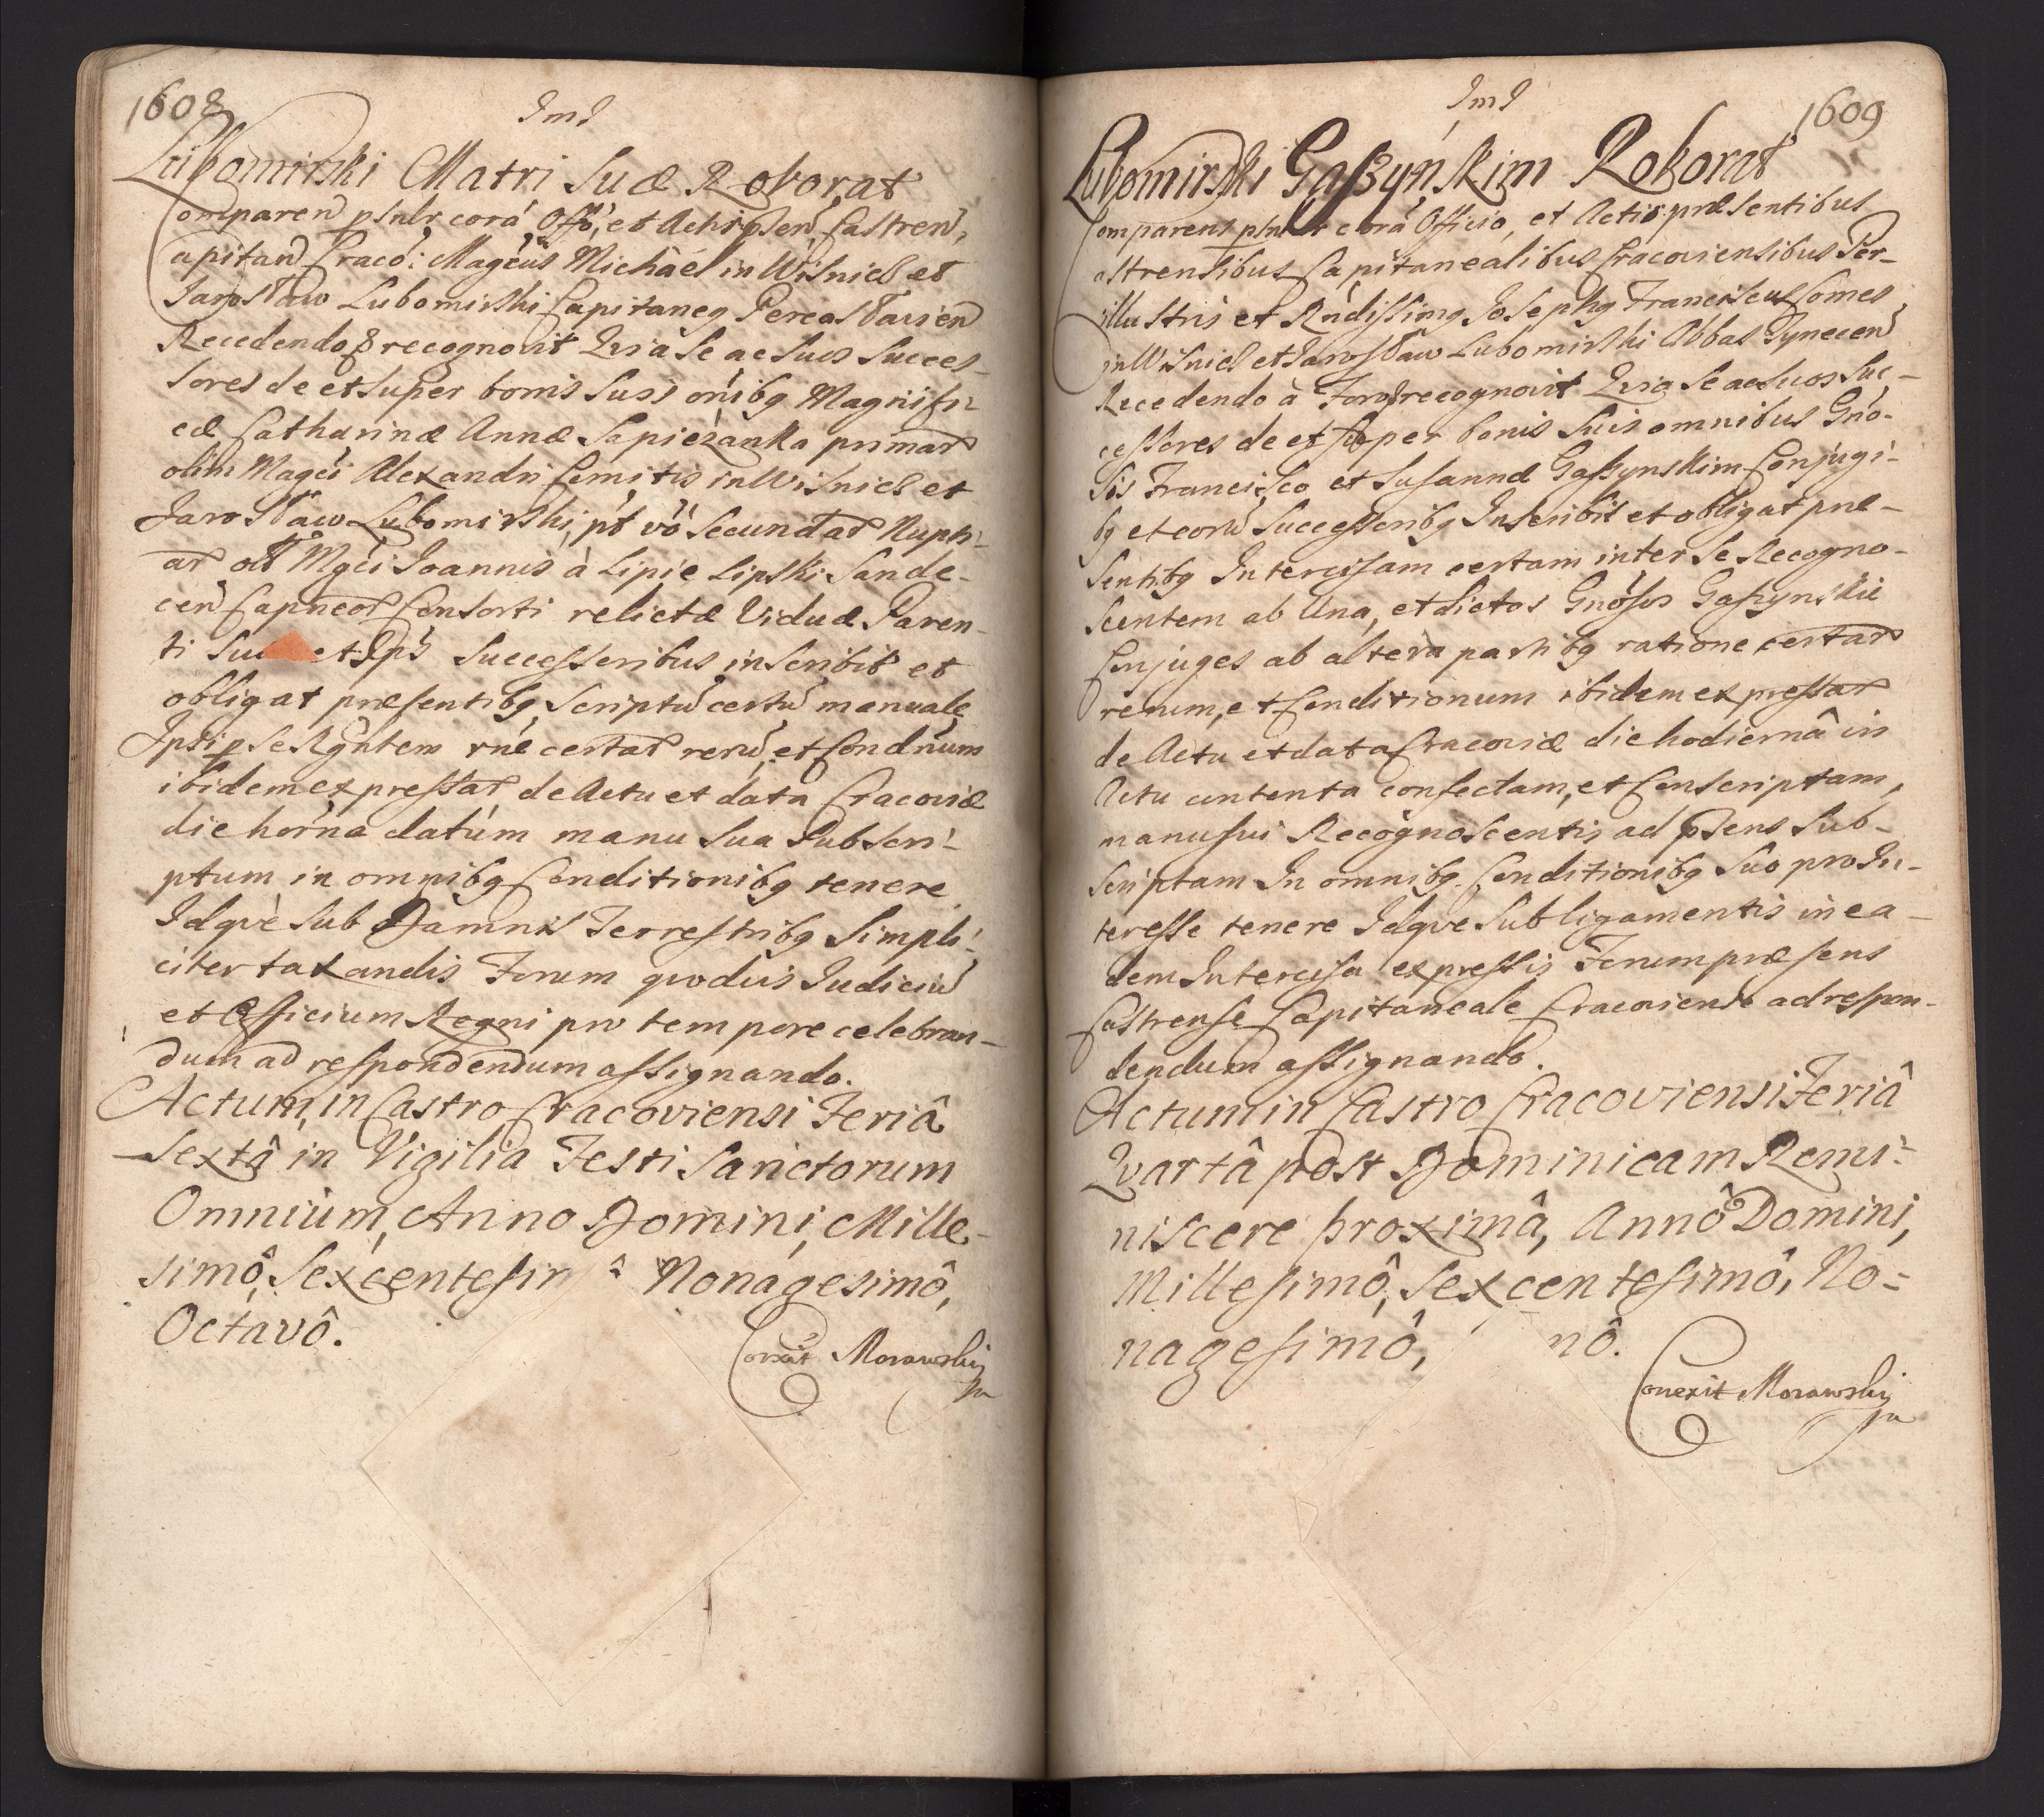 1608
ImI
Lubomirski Matri Suæ Roborat
Comparen psnlr corá Offo, et Actis psen Castren,
Capitan Craco: Magcus Michael in Wisnicz et
Jarosław Lubomirski Capitaneg Pereasławien
Recedendo & recognovit Quia Se ac Suos Succes-
sores de et super bonis Suis onibg Magnifi-
cæ Catharinæ Annæ Sapiezanka primar
olim Magci Alexandri Comitis in Wisnicz et
Jarosław Lubomirski, pt vo Secundar Nupti-
ar olt Mgci Joannis à Lipie Lipski Sande-
cen Capneor Consorti relictæ Viduæ Paren-
ti Suæ et Ips Successoribus inscribit et
obligat præsentibg Scriptu certu manuale
Ipsi pse Rgntem rne certar reru, et Condnum
ibidem expressar de Actu et data Cracoviæ
die horna datúm manu Sua Subscri-
ptum in omnibg Conditionibg tenere
Idqve Sub Damnis Terrestribg Simpli-
citer taxandis Forum qvodvis Judiciu
et Officium Regni pro tempore celebran-
dum ad respondendum assignando.
Actum in Castro Cracoviensi Feriâ
Sextâ in Vigilia Festi Sanctorum
Omnium, Anno Domini, Mille-
simô, Sexcentesim ô Nonagesimô,
Octavô.
Corexit Morawski
1609
ImI
Lubomirski Gaszyńskim Roborat
Comparens psnlr corá Officio, et Actis præsentibus
Castrensibus Capitanealibus Cracoviensibus Per-
illustris et Rndissimg Josephg Franciscus Comes
in Wisnicz et Jarosław Lubomirski Abbas Tynecen
Recedendo à Foro & recognovit Quia Se ac Suos Suc-
cessores de et super bonis Suis omnibus Gno-
sis Francisco et Susannæ Gaszynskim Conjugi-
bg et eoru Successoribg Inscribit et obligat præ-
sentibg Intercisam certam inter Se Recogno-
scentem ab Una, et dictos Gnosos Gaszynskie
Conjuges ab altera partibg ratione certar
rerum, et Conditionum ibidem expressar
de Actu et data Cracoviæ die hodiernâ in
Actu contenta confectam, et Conscriptam,
manu sui Recognoscentis ad psens Sub-
scriptam In omnibg Conditionibg Suo pro In-
teresse tenere Idqve Sub ligamentis in ea-
dem Intercisa expressis Forum præsens
Castrense Capitaneale Cracoviense ad respon-
dendum assignando.
Actum in Castro Cracoviensi Feriâ
Qvartâ post Dominicam Remi-
niscere proximâ, Annô Domini,
Millesimô, Sexcentesimô, No=
nagesimô, nô.
Corexit Morawski